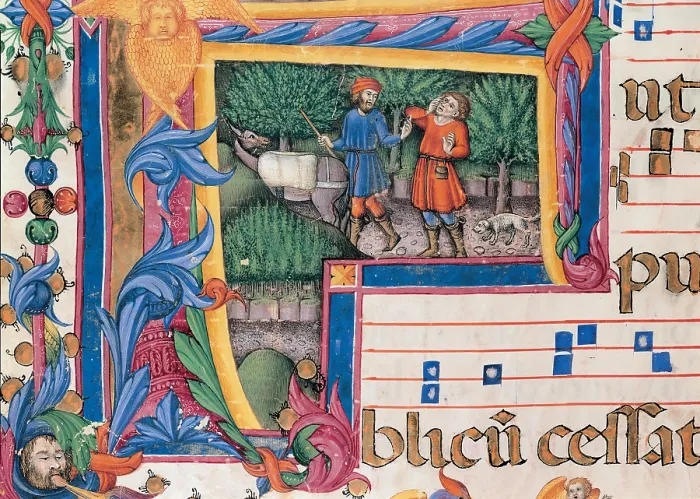 ut
pu
blicū ceſſat